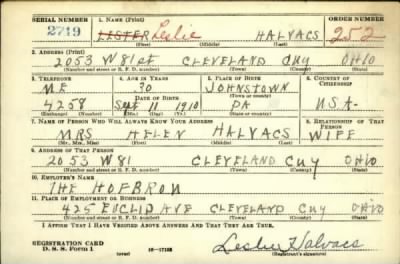 SERIAL NUMBER 1. NAME (Print) ORDER NUMBER
2719 LESTER Leslie HALVACS 252
(First) (Middle) (Last)
2. ADDRESS (Print)
2053 W 81 st CLEVELAND CUY OHIO
(Number and street or R. F. D. number) (Town) (County) (State)
3. TELEPHONE 4. AGE IN YEARS 5. PLACE OF BIRTH 6. COUNTRY OF CITIZENSHIP
ME 30 JOHNSTOWN
DATE OF BIRTH (Town or county)
4258 Sept 11 1910 PA U.S.A.
(Exchange) (Number) (Mo.) (Day) (Yr.) (State or country)
7. NAME OF PERSON WHO WILL ALWAYS KNOW YOUR ADDRESS 8. RELATIONSHIP OF THAT PERSON
MRS HELEN HALVACS WIFE
(Mr., Mrs., Miss) (First) (Middle) (Last)
9. ADDRESS OF THAT PERSON
2053 W 81 CLEVELAND CUY OHIO
(Number and street or R. F. D. number) (Town) (County) (State)
10. EMPLOYER'S NAME
THE HOFBROW
11. PLACE OF EMPLOYMENT OR BUSINESS
425 EUCLID AVE CLEVELAND CUY OHIO
(Number and street or R. F. D. number) (Town) (County) (State)
I AFFIRM THAT I HAVE VERIFIED ABOVE ANSWERS AND THAT THEY ARE TRUE.
REGISTRATION CARD
D. S. S. Form 1 (over) Leslie Halvacs
(Registrant's signature)